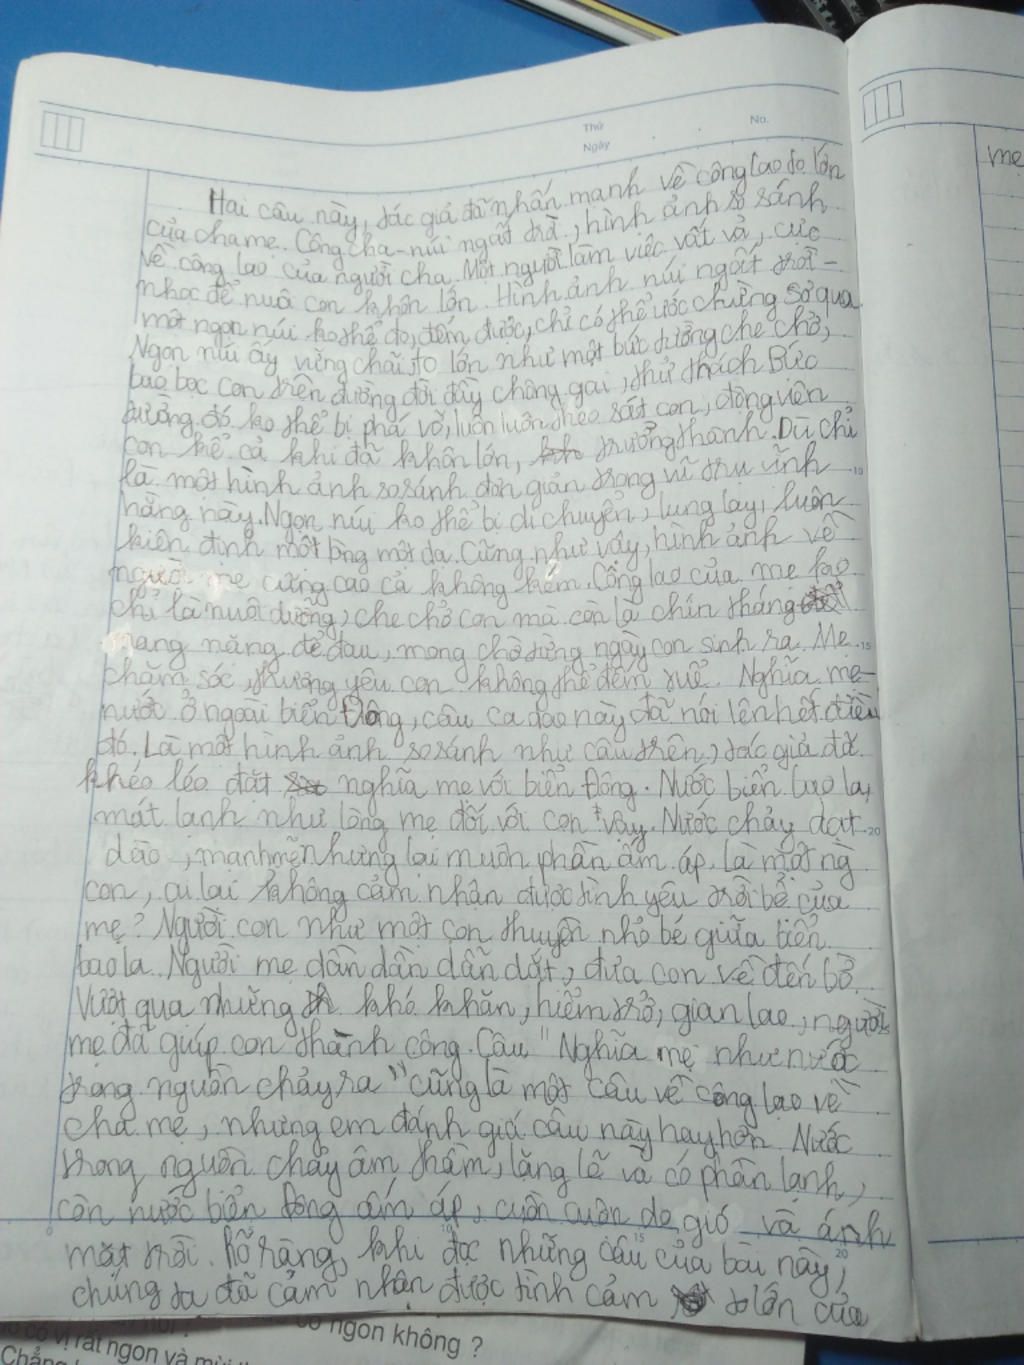 Thứ
No.
Ngày
mẹ
Hai câu này, tác giả đã nhấn mạnh về công lao to lớn
của cha mẹ. Công cha - núi ngất trời, hình ảnh so sánh
về công lao của người cha. Một người làm việc vất vả, cực
nhọc để nuôi con khôn lớn. Hình ảnh núi ngất trời -
một ngọn núi ko thể đo, đếm được, chỉ có thể ước chừng sơ qua.
Ngọn núi ấy vững chãi, to lớn như một bức tường che chở,
bao bọc con trên đường đời đầy chông gai, thử thách. Bức
tường đó ko thể bị phá vỡ, luôn luôn theo sát con, động viên
con kể cả khi đã khôn lớn, trưởng thành. Dù chỉ
là một hình ảnh so sánh đơn giản trong vũ trụ vĩnh
hằng này. Ngọn núi ko thể bị di chuyển, lung lay, luôn
kiên định một lòng một dạ. Cũng như vậy, hình ảnh về
người mẹ cũng cao cả không kém. Công lao của mẹ ko
chỉ là nuôi dưỡng, che chở con mà còn là chín tháng
mang nặng đẻ đau, mong chờ từng ngày con sinh ra. Mẹ
chăm sóc, thương yêu con không thể đếm xuể. Nghĩa mẹ -
nước ở ngoài biển Đông, câu ca dao này đã nói lên hết điều
đó. Là một hình ảnh so sánh như câu trên, tác giả đã
khéo léo đặt nghĩa mẹ với biển Đông. Nước biển bao la,
mát lạnh như lòng mẹ đối với con vậy. Nước chảy dạt
dào, mạnh mẽ nhưng lại muôn phần ấm áp. Là một ng
con, ai lại không cảm nhận được tình yêu trời bể của
mẹ? Người con như một con thuyền nhỏ bé giữa biển
bao la. Người mẹ dần dần dẫn dắt, đưa con về đến bờ.
Vượt qua những khó khăn, hiểm trở, gian lao, người
mẹ đã giúp con thành công. Câu "Nghĩa mẹ như nước
trong nguồn chảy ra" cũng là một câu về công lao về
cha mẹ, nhưng em đánh giá câu này hay hơn. Nước
trong nguồn chảy âm thầm, lặng lẽ và có phần lạnh,
còn nước biển Đông ấm áp, cuồn cuộn do gió và ánh
mặt trời. Rõ ràng, khi đọc những câu của bài này,
chúng ta đã cảm nhận được tình cảm to lớn của
có vị rất ngon và
có ngon không ?
Chẳng